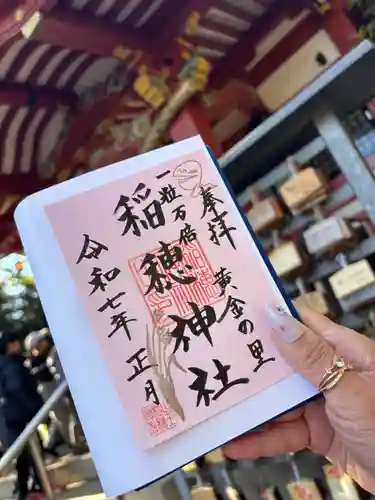 奉拝
一粒万倍
黄金の里
稲穂神社
令和七年正月